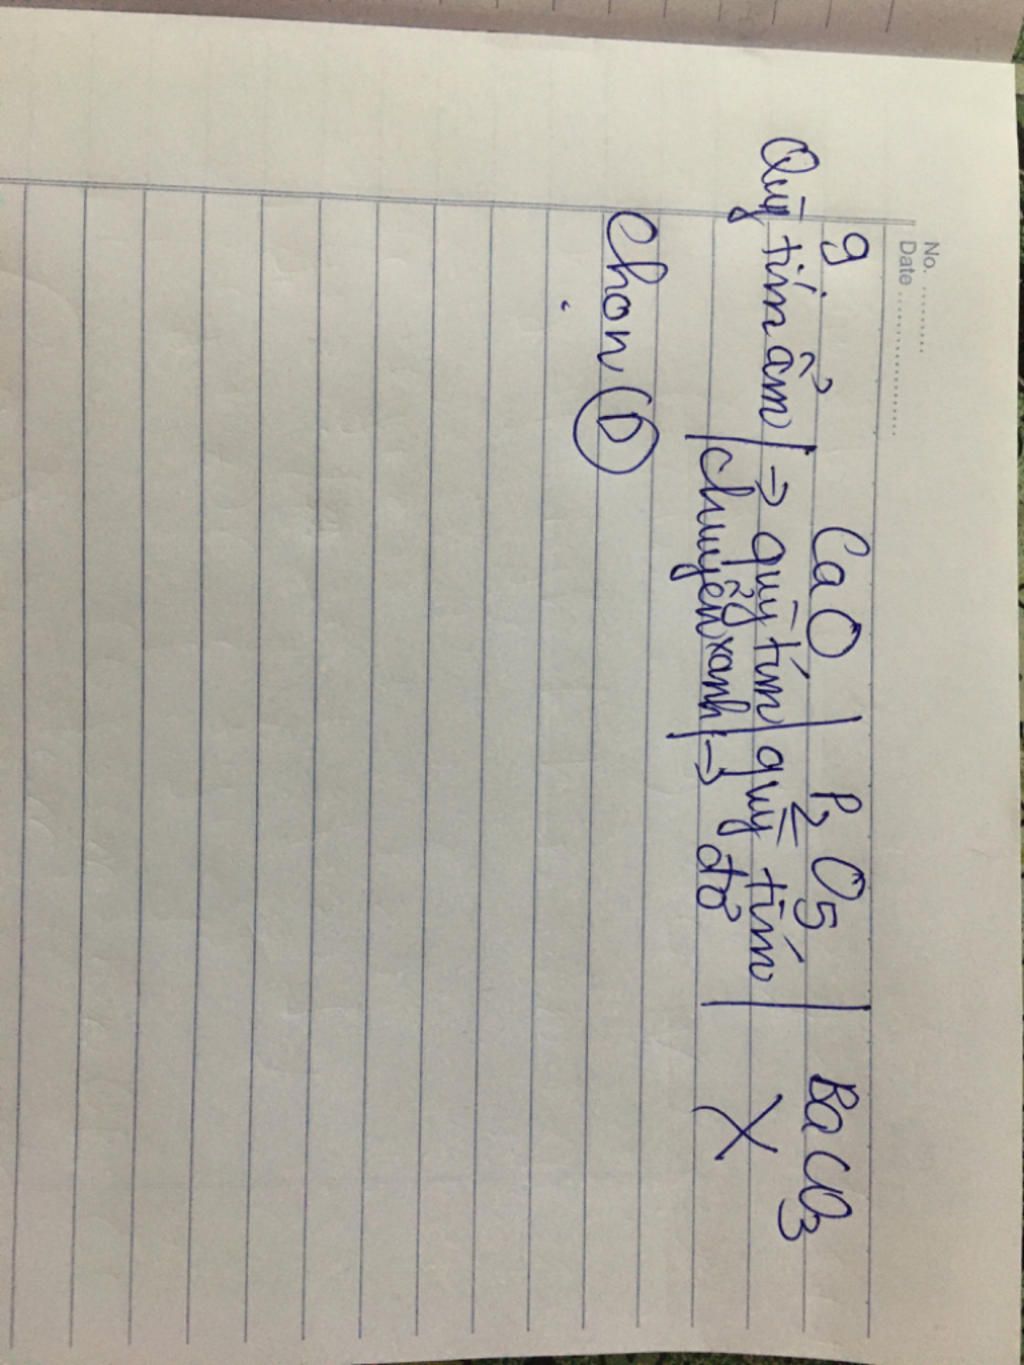 No. ..........
Date ....................
9. CaO | P2O5 | BaCO3
Quỳ tím ẩm | → quỳ tím | quỳ tím | X
| chuyển xanh | → đỏ |
Chọn D